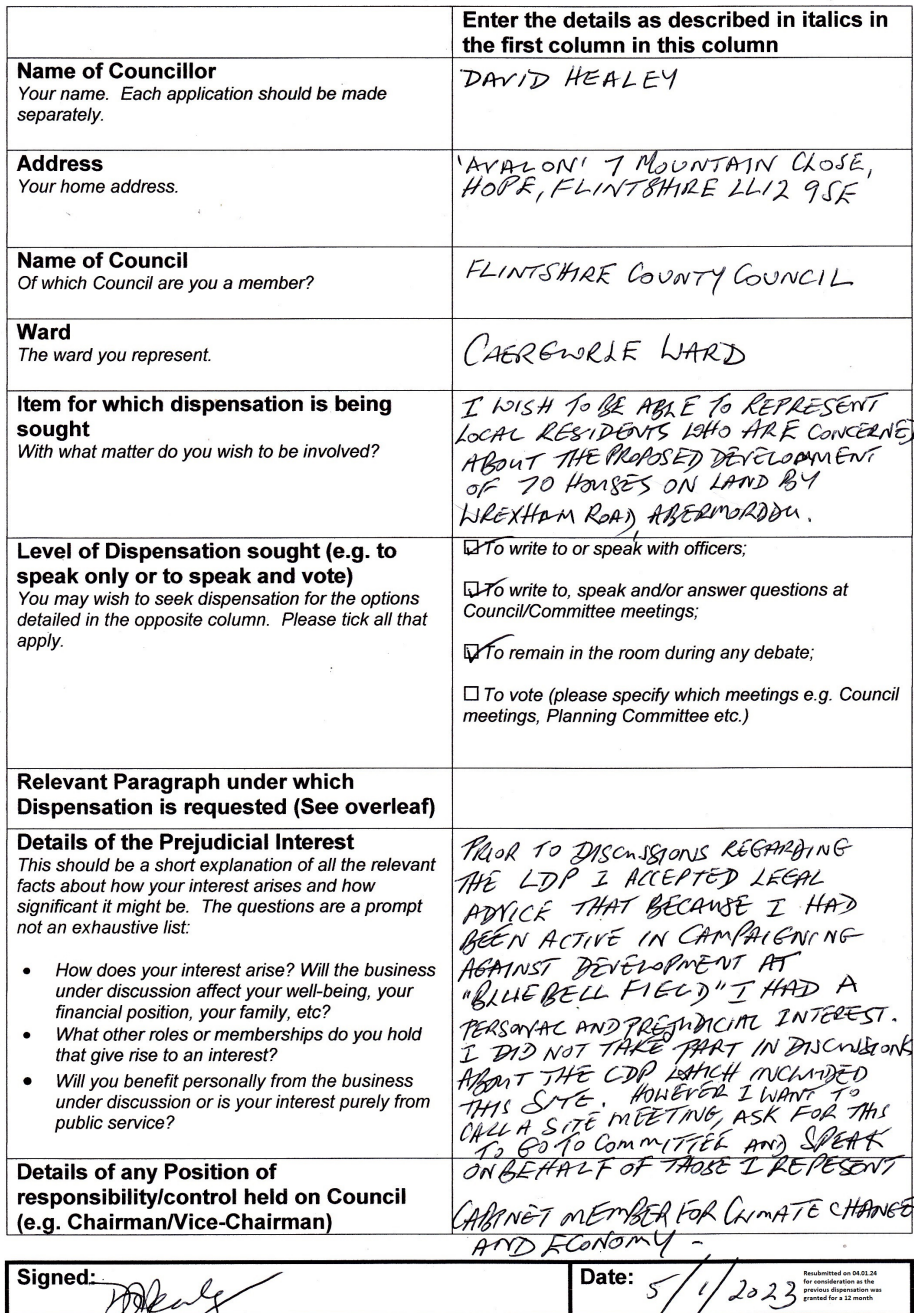 Enter the details as described in italics in
the first column in this column
Name of Councillor
Your name. Each application should be made
separately.
DAVID HEALEY
Address
Your home address.
'AVALON' 7 MOUNTAIN CLOSE,
HOPE, FLINTSHIRE LL12 9SE
Name of Council
Of which Council are you a member?
FLINTSHIRE COUNTY COUNCIL
Ward
The ward you represent.
CAERGWRLE WARD
Item for which dispensation is being
sought
With what matter do you wish to be involved?
I WISH TO BE ABLE TO REPRESENT
LOCAL RESIDENTS WHO ARE CONCERNED
ABOUT THE PROPOSED DEVELOPMENT
OF 70 HOUSES ON LAND BY
WREXHAM ROAD, ABERMORDDU.
Level of Dispensation sought (e.g. to
speak only or to speak and vote)
You may wish to seek dispensation for the options
detailed in the opposite column. Please tick all that
apply.
☑ To write to or speak with officers;
☑ To write to, speak and/or answer questions at
Council/Committee meetings;
☑ To remain in the room during any debate;
☐ To vote (please specify which meetings e.g. Council
meetings, Planning Committee etc.)
Relevant Paragraph under which
Dispensation is requested (See overleaf)
Details of the Prejudicial Interest
This should be a short explanation of all the relevant
facts about how your interest arises and how
significant it might be. The questions are a prompt
not an exhaustive list:
• How does your interest arise? Will the business
under discussion affect your well-being, your
financial position, your family, etc?
• What other roles or memberships do you hold
that give rise to an interest?
• Will you benefit personally from the business
under discussion or is your interest purely from
public service?
PRIOR TO DISCUSSIONS REGARDING
THE LDP I ACCEPTED LEGAL
ADVICE THAT BECAUSE I HAD
BEEN ACTIVE IN CAMPAIGNING
AGAINST DEVELOPMENT AT
"BLUEBELL FIELD" I HAD A
PERSONAL AND PREJUDICIAL INTEREST.
I DID NOT TAKE PART IN DISCUSSIONS
ABOUT THE LDP WHICH INCLUDED
THIS SITE. HOWEVER I WANT TO
CALL A SITE MEETING, ASK FOR THIS
TO GO TO COMMITTEE AND SPEAK
ON BEHALF OF THOSE I REPESENT
Details of any Position of
responsibility/control held on Council
(e.g. Chairman/Vice-Chairman)
CABINET MEMBER FOR CLIMATE CHANGE
AND ECONOMY -
Signed:
Date: 5/1/2023
Resubmitted on 04.01.24
for consideration as the
previous dispensation was
granted for a 12 month